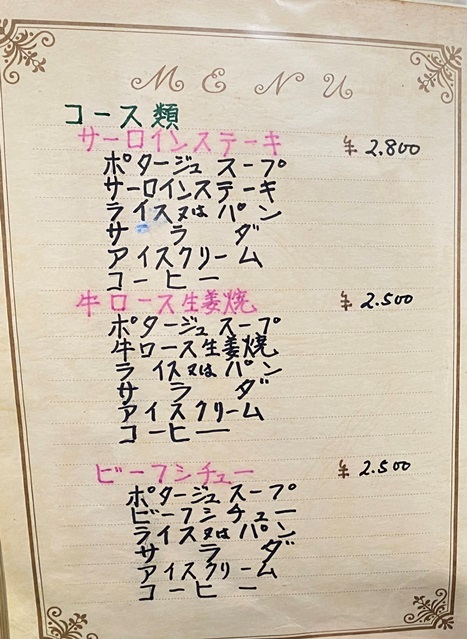 MENU
コース類
サーロインステーキ ¥2.800
ポタージュスープ
サーロインステーキ
ライス又はパン
サラダ
アイスクリーム
コーヒー
牛ロース生姜焼 ¥2.500
ポタージュスープ
牛ロース生姜焼
ライス又はパン
サラダ
アイスクリーム
コーヒー
ビーフシチュー ¥2.500
ポタージュスープ
ビーフシチュー
ライス又はパン
サラダ
アイスクリーム
コーヒー